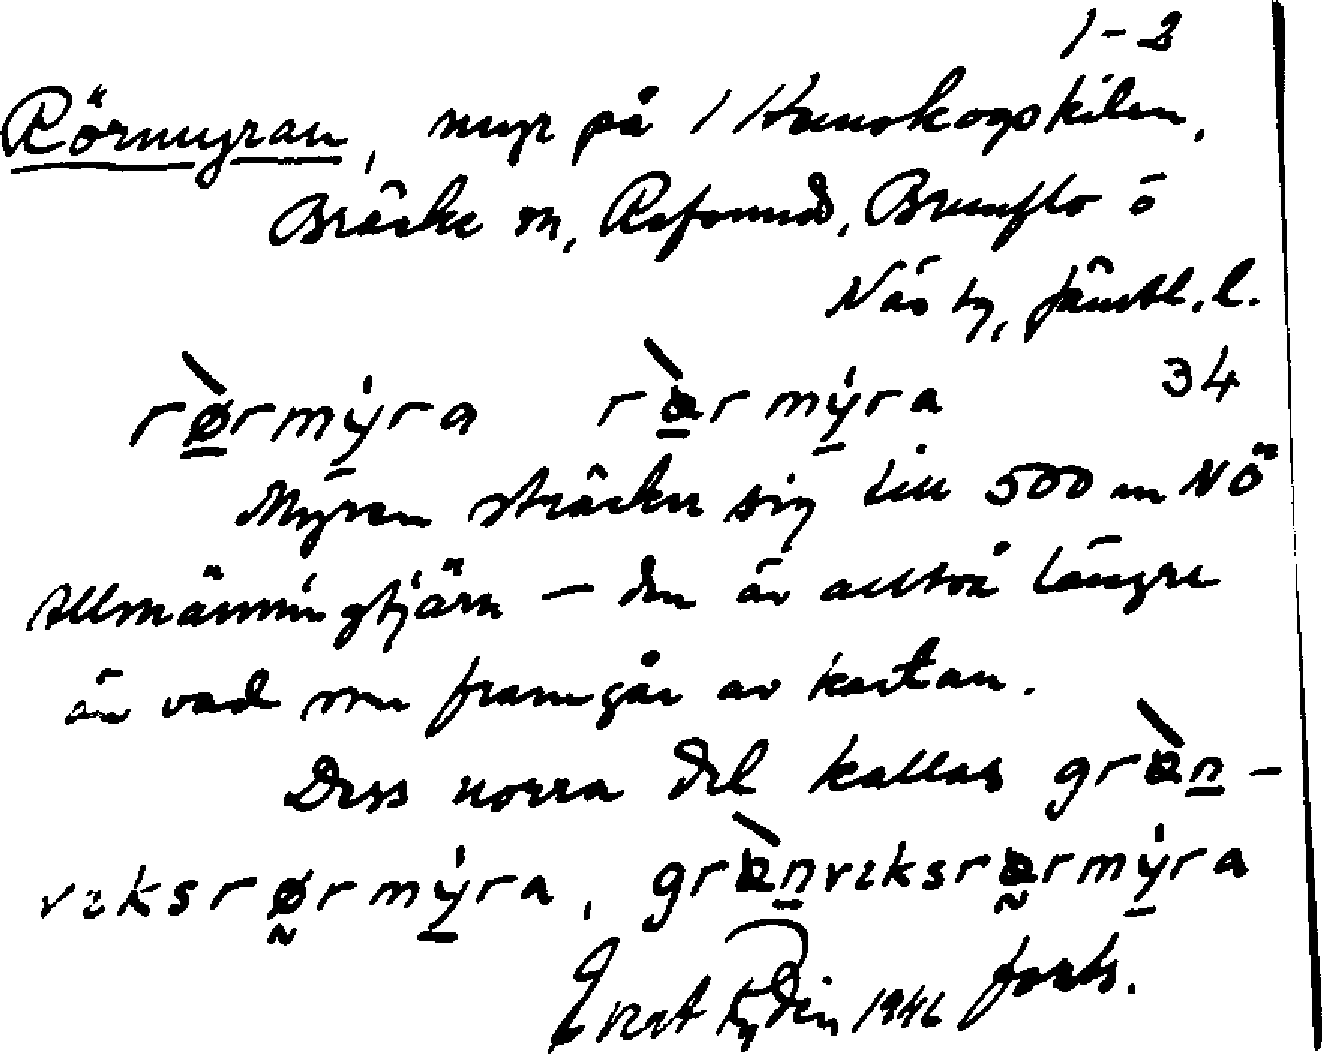 1-2
Rörmyran, myr på / Hunskogskilen,
Bräcke sn, Refsunds, Brunflo o
Näs tg, Jämtl. l.
rø̀rmýra rɵ̀rmýra 34
Myren sträcker sig till 500 m NÖ
Allmänningstjärn – den är alltså längre
än vad som framgår av kartan.
Dess norra del kallas gràn-
vɩksrørmýra, grànvɩksrɵrmýra
Evert Lydin 1946 forts.